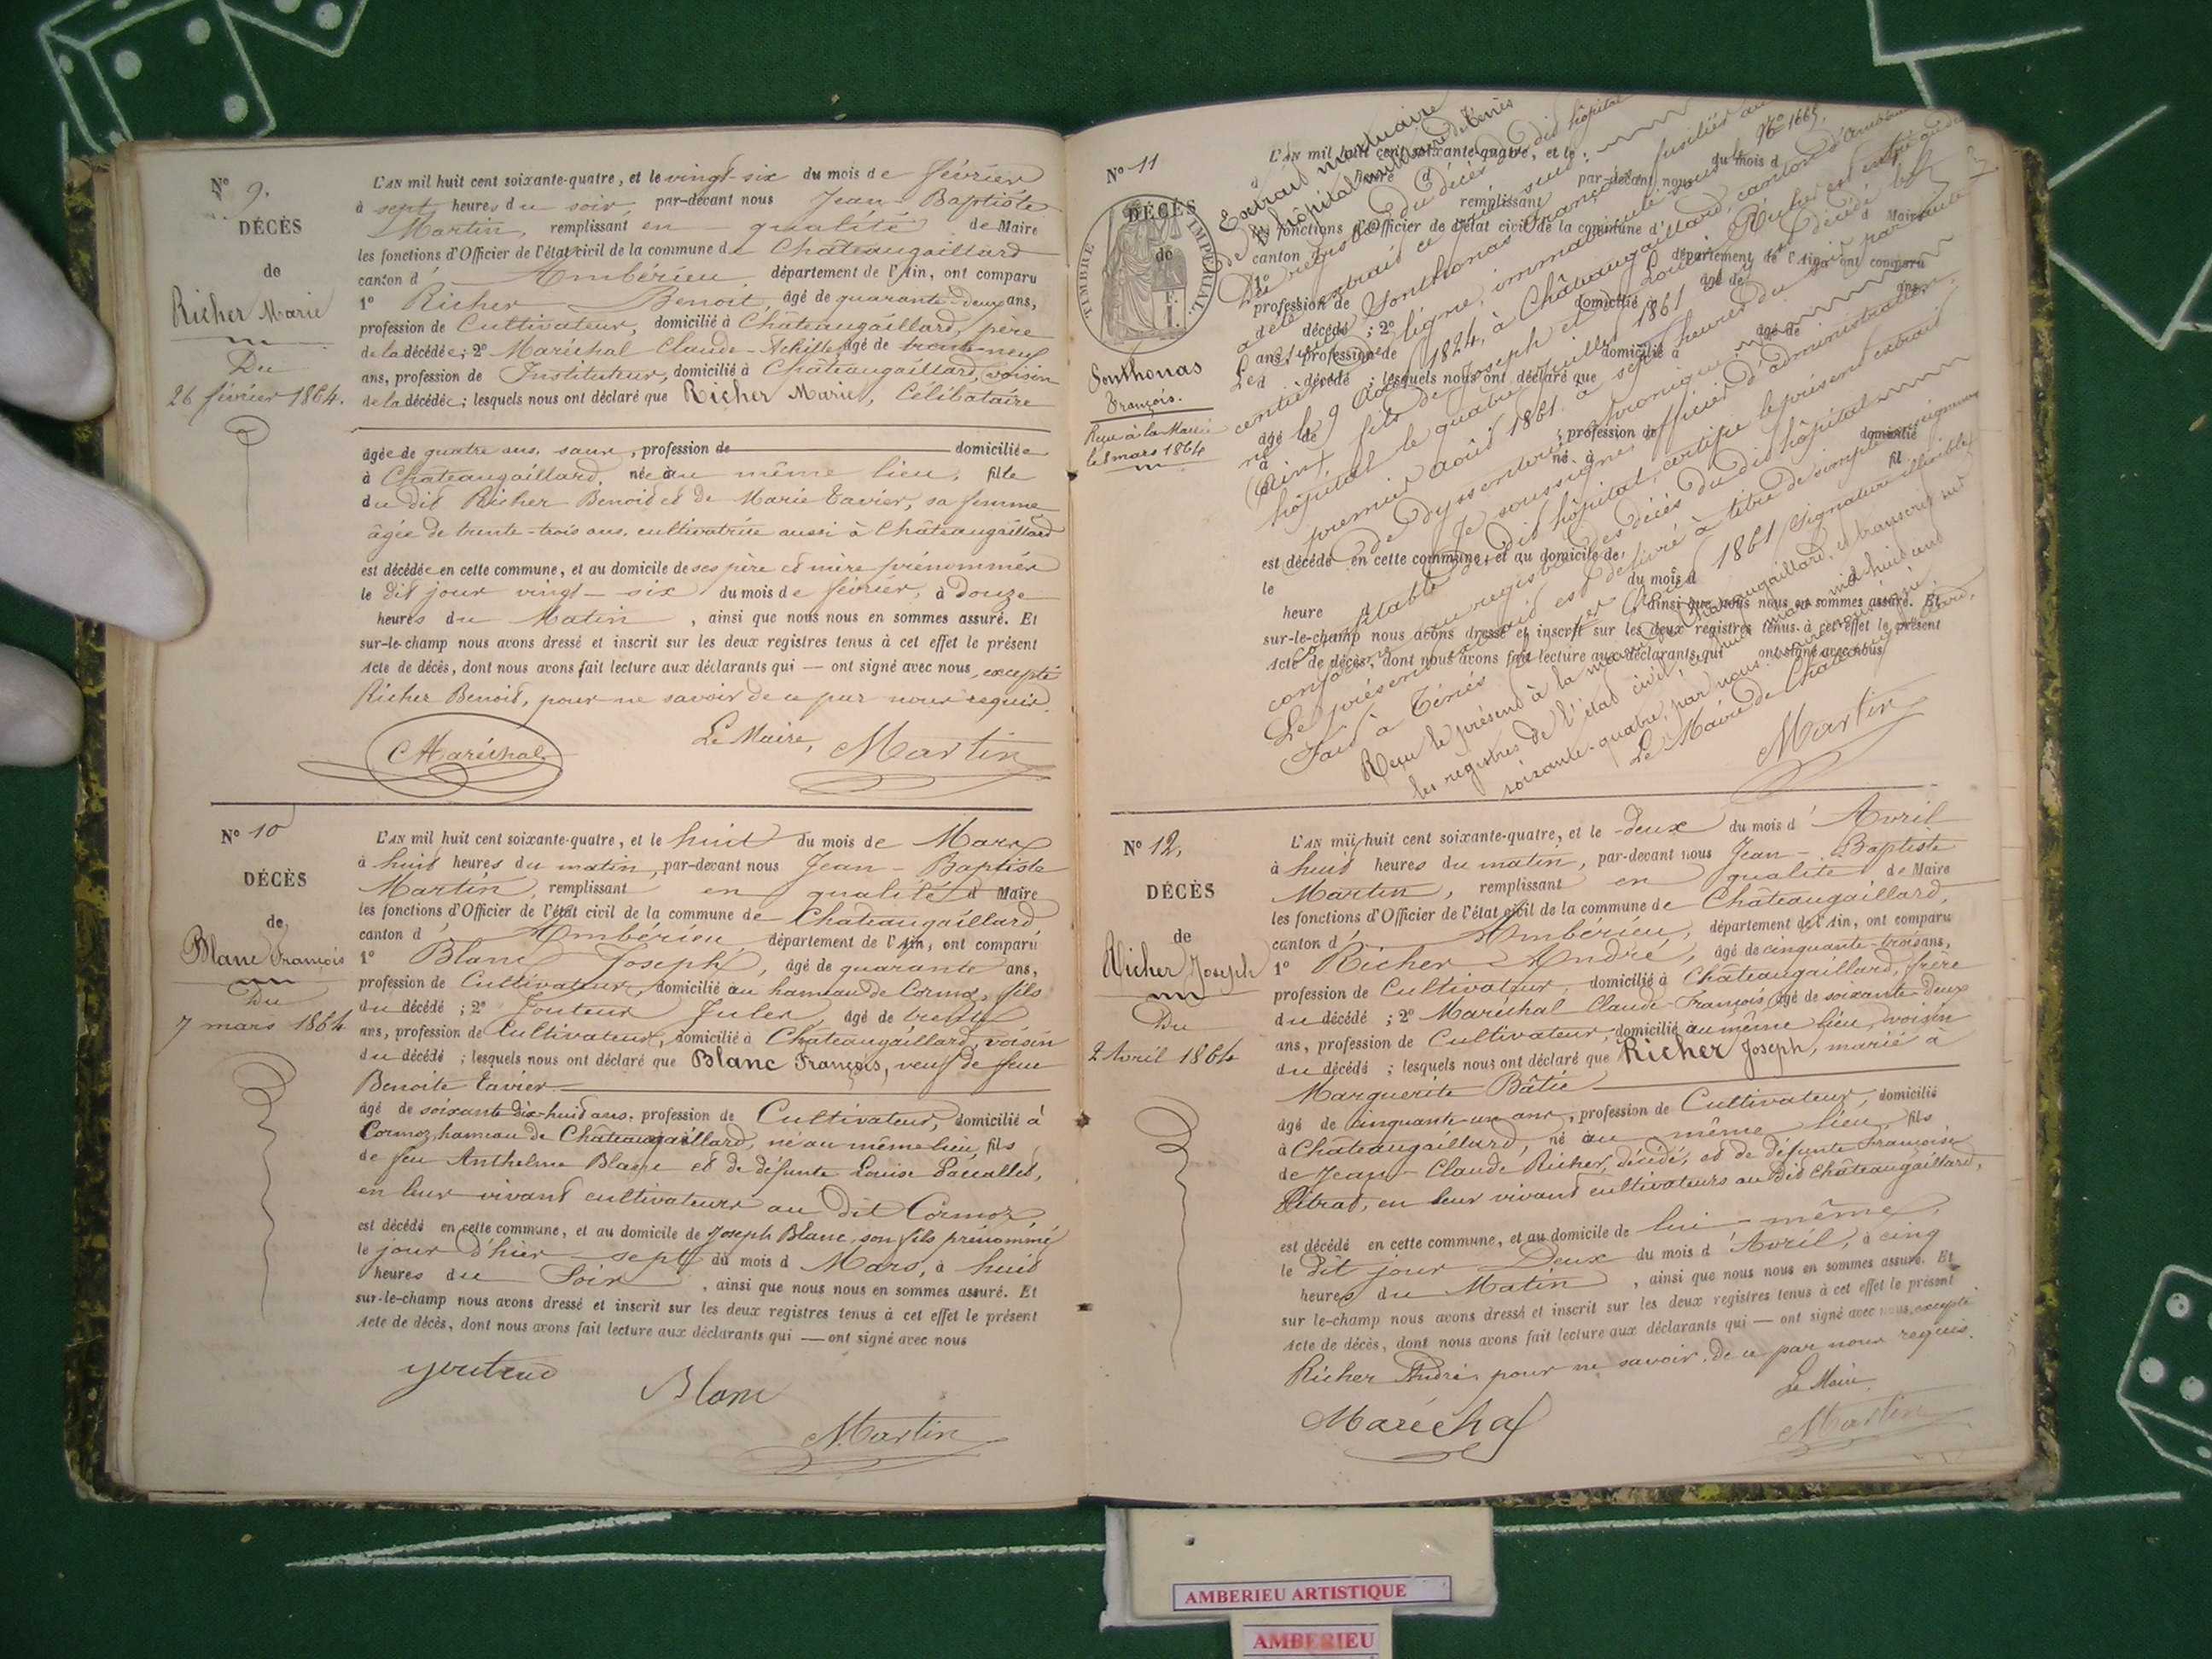 N° 9.
DÉCÈS
de
Richer Marie
Du
26 février 1864.
L'AN mil huit cent soixante-quatre, et le vingt-six du mois de février
à sept heures du soir par-devant nous Jean-Baptiste
Martin, remplissant en qualité de Maire
les fonctions d'Officier de l'état civil de la commune de Châteaugaillard
canton d' Ambérieu, département de l'Ain, ont comparu
1° Richer Benoit, âgé de quarante-deux ans,
profession de Cultivateur, domicilié à Châteaugaillard, père
de la décédée; 2° Maréchal Claude-Achille, âgé de trente-neuf
ans, profession de Instituteur, domicilié à Châteaugaillard, voisin
de la décédée; lesquels nous ont déclaré que Richer Marie, Célibataire
âgée de quatre ans, sans, profession de domiciliée
à Châteaugaillard, née au même lieu, fille
du dit Richer Benoit et de Marie Tavier, sa femme
âgée de trente-trois ans, cultivatrice aussi à Châteaugaillard
est décédée en cette commune, et au domicile de ses père et mère prénommés
le dit jour vingt-six du mois de février, à douze
heures du Matin, ainsi que nous nous en sommes assuré. Et
sur-le-champ nous avons dressé et inscrit sur les deux registres tenus à cet effet le présent
Acte de décès, dont nous avons fait lecture aux déclarants qui — ont signé avec nous, excepté
Richer Benoit, pour ne savoir de ce par nous requis.
Le Maire,
Maréchal Martin
N° 10
DÉCÈS
de
Blanc François
Du
7 mars 1864
L'AN mil huit cent soixante-quatre, et le huit du mois de Mars
à huit heures du matin, par-devant nous Jean-Baptiste
Martin, remplissant en qualité d Maire
les fonctions d'Officier de l'état civil de la commune de Châteaugaillard
canton d' Ambérieu, département de l'Ain, ont comparu
1° Blanc Joseph, âgé de quarante ans,
profession de Cultivateur, domicilié au hameau de Cormoz, fils
du décédé; 2° Jules, âgé de trente
ans, profession de Cultivateur, domicilié à Châteaugaillard, voisin
du décédé; lesquels nous ont déclaré que Blanc François, veuf de feue
Benoite Tavier
âgé de soixante-dix-huit ans, profession de Cultivateur, domicilié à
Cormoz hameau de Châteaugaillard, né au même lieu, fils
de feu Anthelme Blanc et de défunte Louise
en leur vivant cultivateurs au dit Cormoz,
est décédé en cette commune, et au domicile de Joseph Blanc, son fils prénommé
le jour d'hier sept du mois d Mars, à huit
heures du Soir, ainsi que nous nous en sommes assuré. Et
sur-le-champ nous avons dressé et inscrit sur les deux registres tenus à cet effet le présent
Acte de décès, dont nous avons fait lecture aux déclarants qui — ont signé avec nous
Blanc
Martin
N° 11
DÉCÈS
de
TIMBRE IMPÉRIAL
Sonthonas
François.
Reçu à la Mairie
le 8 mars 1864
Extrait mortuaire
de l'hôpital militaire de Ténès
Du registre du décès du dit hôpital
a été extrait ce qui suit:
Le Sonthonas François, fusilier au
ligne, immatriculé sous le N° 1665,
né le 9 Août 1824, à Châteaugaillard, canton d'Ambérieu
(Ain), fils de Joseph et de Louise Richer est entré au dit
hôpital le quatre juillet 1861 et y est décédé le
premier Août 1861 à sept heures du soir par suite
de Dyssenterie chronique
Je soussigné, officier d'administration,
comptable du dit hôpital, certifie le présent extrait
conforme au registre des décès du dit hôpital
Le présent extrait est délivré à titre de simple renseignement
Fait à Ténès, le 1861 (Signature illisible)
Reçu le présent à la mairie de Châteaugaillard, et transcrit sur
les registres de l'état civil, le huit mars mil huit cent
soixante-quatre, par nous, maire soussigné.
Le Maire de Châteaugaillard,
Martin
N° 12.
DÉCÈS
de
Richer Joseph
Du
2 Avril 1864
L'AN mil huit cent soixante-quatre, et le deux du mois d' Avril
à huit heures du matin, par-devant nous Jean-Baptiste
Martin, remplissant en qualité de Maire
les fonctions d'Officier de l'état civil de la commune de Châteaugaillard,
canton d' Ambérieu, département de l'Ain, ont comparu
1° Richer André, âgé de cinquante-trois ans,
profession de Cultivateur, domicilié à Châteaugaillard, frère
du décédé; 2° Maréchal Claude-François, âgé de soixante-deux
ans, profession de Cultivateur, domicilié au même lieu, voisin
du décédé; lesquels nous ont déclaré que Richer Joseph, marié à
Marguerite Bâtie
âgé de cinquante-un ans, profession de Cultivateur, domicilié
à Châteaugaillard, né au même lieu, fils
de Jean-Claude Richer, décédé, et de défunte Françoise
en leur vivant cultivateurs au dit Châteaugaillard,
est décédé en cette commune, et au domicile de lui-même,
le dit jour Deux du mois d' Avril, à cinq
heures du Matin, ainsi que nous nous en sommes assuré. Et
sur le-champ nous avons dressé et inscrit sur les deux registres tenus à cet effet le présent
Acte de décès, dont nous avons fait lecture aux déclarants qui — ont signé avec nous, excepté
Richer André, pour ne savoir, de ce par nous requis.
Le Maire
Maréchal Martin
AMBERIEU ARTISTIQUE
AMBERIEU